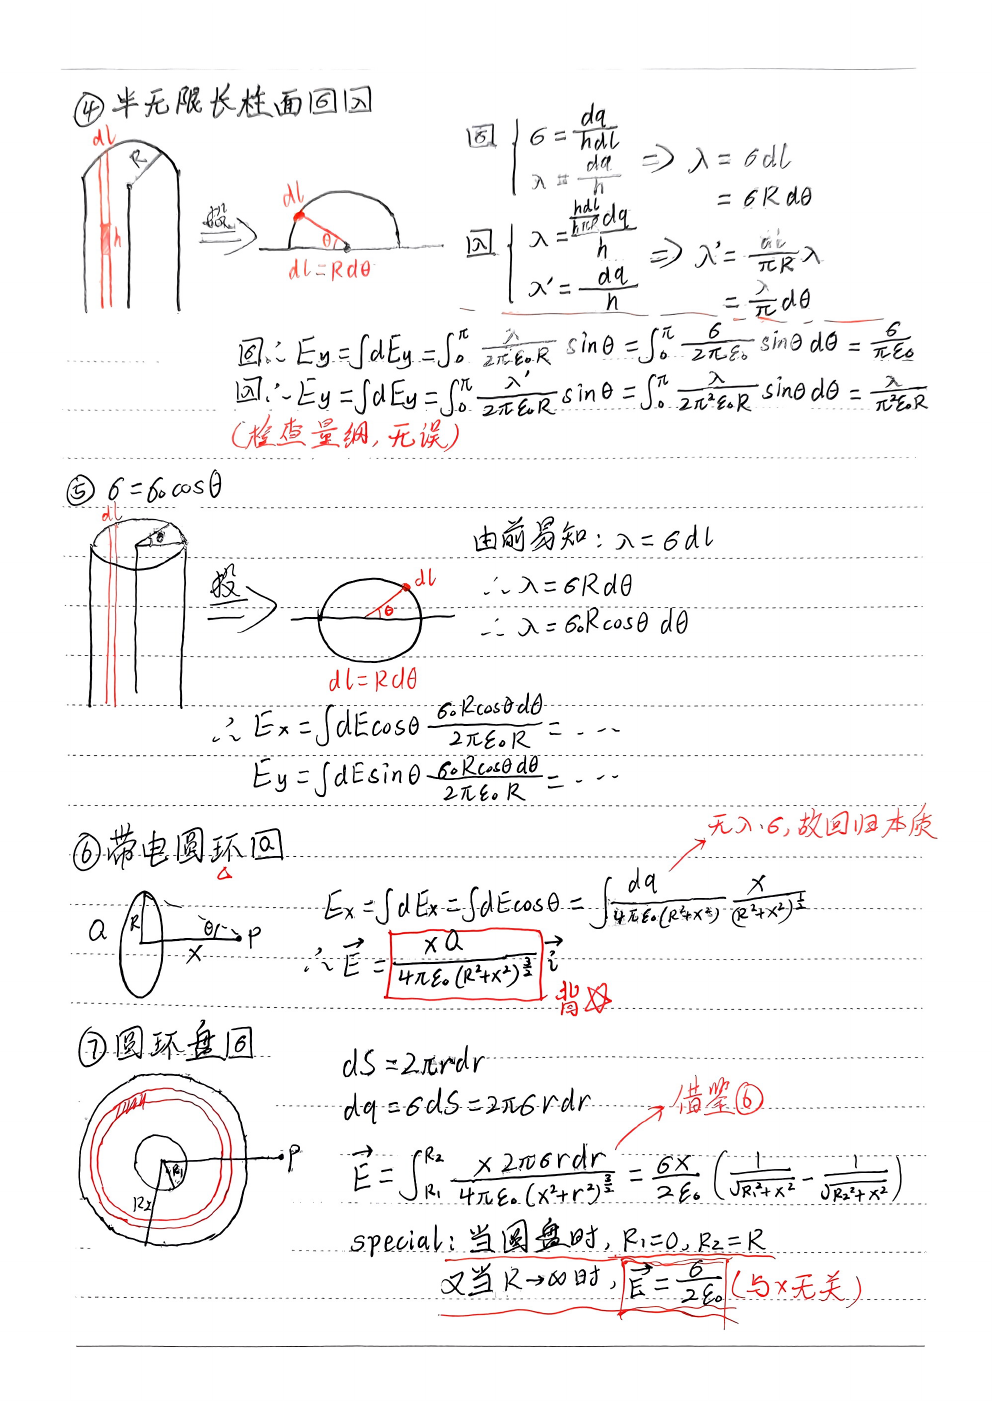 ④ 半无限长柱面 σ λ
dl
R
h
投
⇒
dl
θ
dl=Rdθ
σ { σ = dq/hdl
λ = dq/h ⇒ λ = σdl
= σRdθ
λ { λ = (hdl/hπR)dq/h
λ' = dq/h ⇒ λ' = dl/πR λ
= λ/π dθ
σ ∴ Ey = ∫dEy = ∫₀^π λ/2πε₀R sinθ = ∫₀^π σ/2πε₀ sinθ dθ = σ/πε₀
λ ∴ Ey = ∫dEy = ∫₀^π λ'/2πε₀R sinθ = ∫₀^π λ/2π²ε₀R sinθ dθ = λ/π²ε₀R
(检查量纲, 无误)
⑤ σ = σ₀cosθ
dl
θ
投
⇒
dl
θ
dl=Rdθ
由前易知: λ = σdl
∴ λ = σRdθ
∴ λ = σ₀Rcosθ dθ
∴ Ex = ∫dEcosθ σ₀Rcosθdθ/2πε₀R = ...
Ey = ∫dEsinθ σ₀Rcosθdθ/2πε₀R = ...
无λ·σ, 故回归本质
⑥ 带电圆环 Q
Q
R
θ
P
x
Ex = ∫dEx = ∫dEcosθ = ∫ dq/4πε₀(R²+x²) x/(R²+x²)^½
∴ E⃗ = xQ/4πε₀(R²+x²)^(3/2) i⃗
背☆
⑦ 圆环盘 σ
R₁
R₂
P
dS = 2πrdr
dq = σdS = 2πσrdr
借鉴⑥
E⃗ = ∫_R₁^R₂ x2πσrdr/4πε₀(x²+r²)^(3/2) = σx/2ε₀ (1/√(R₁²+x²) - 1/√(R₂²+x²))
special: 当圆盘时, R₁=0, R₂=R
又当R→∞时, E⃗ = σ/2ε₀ (与x无关)